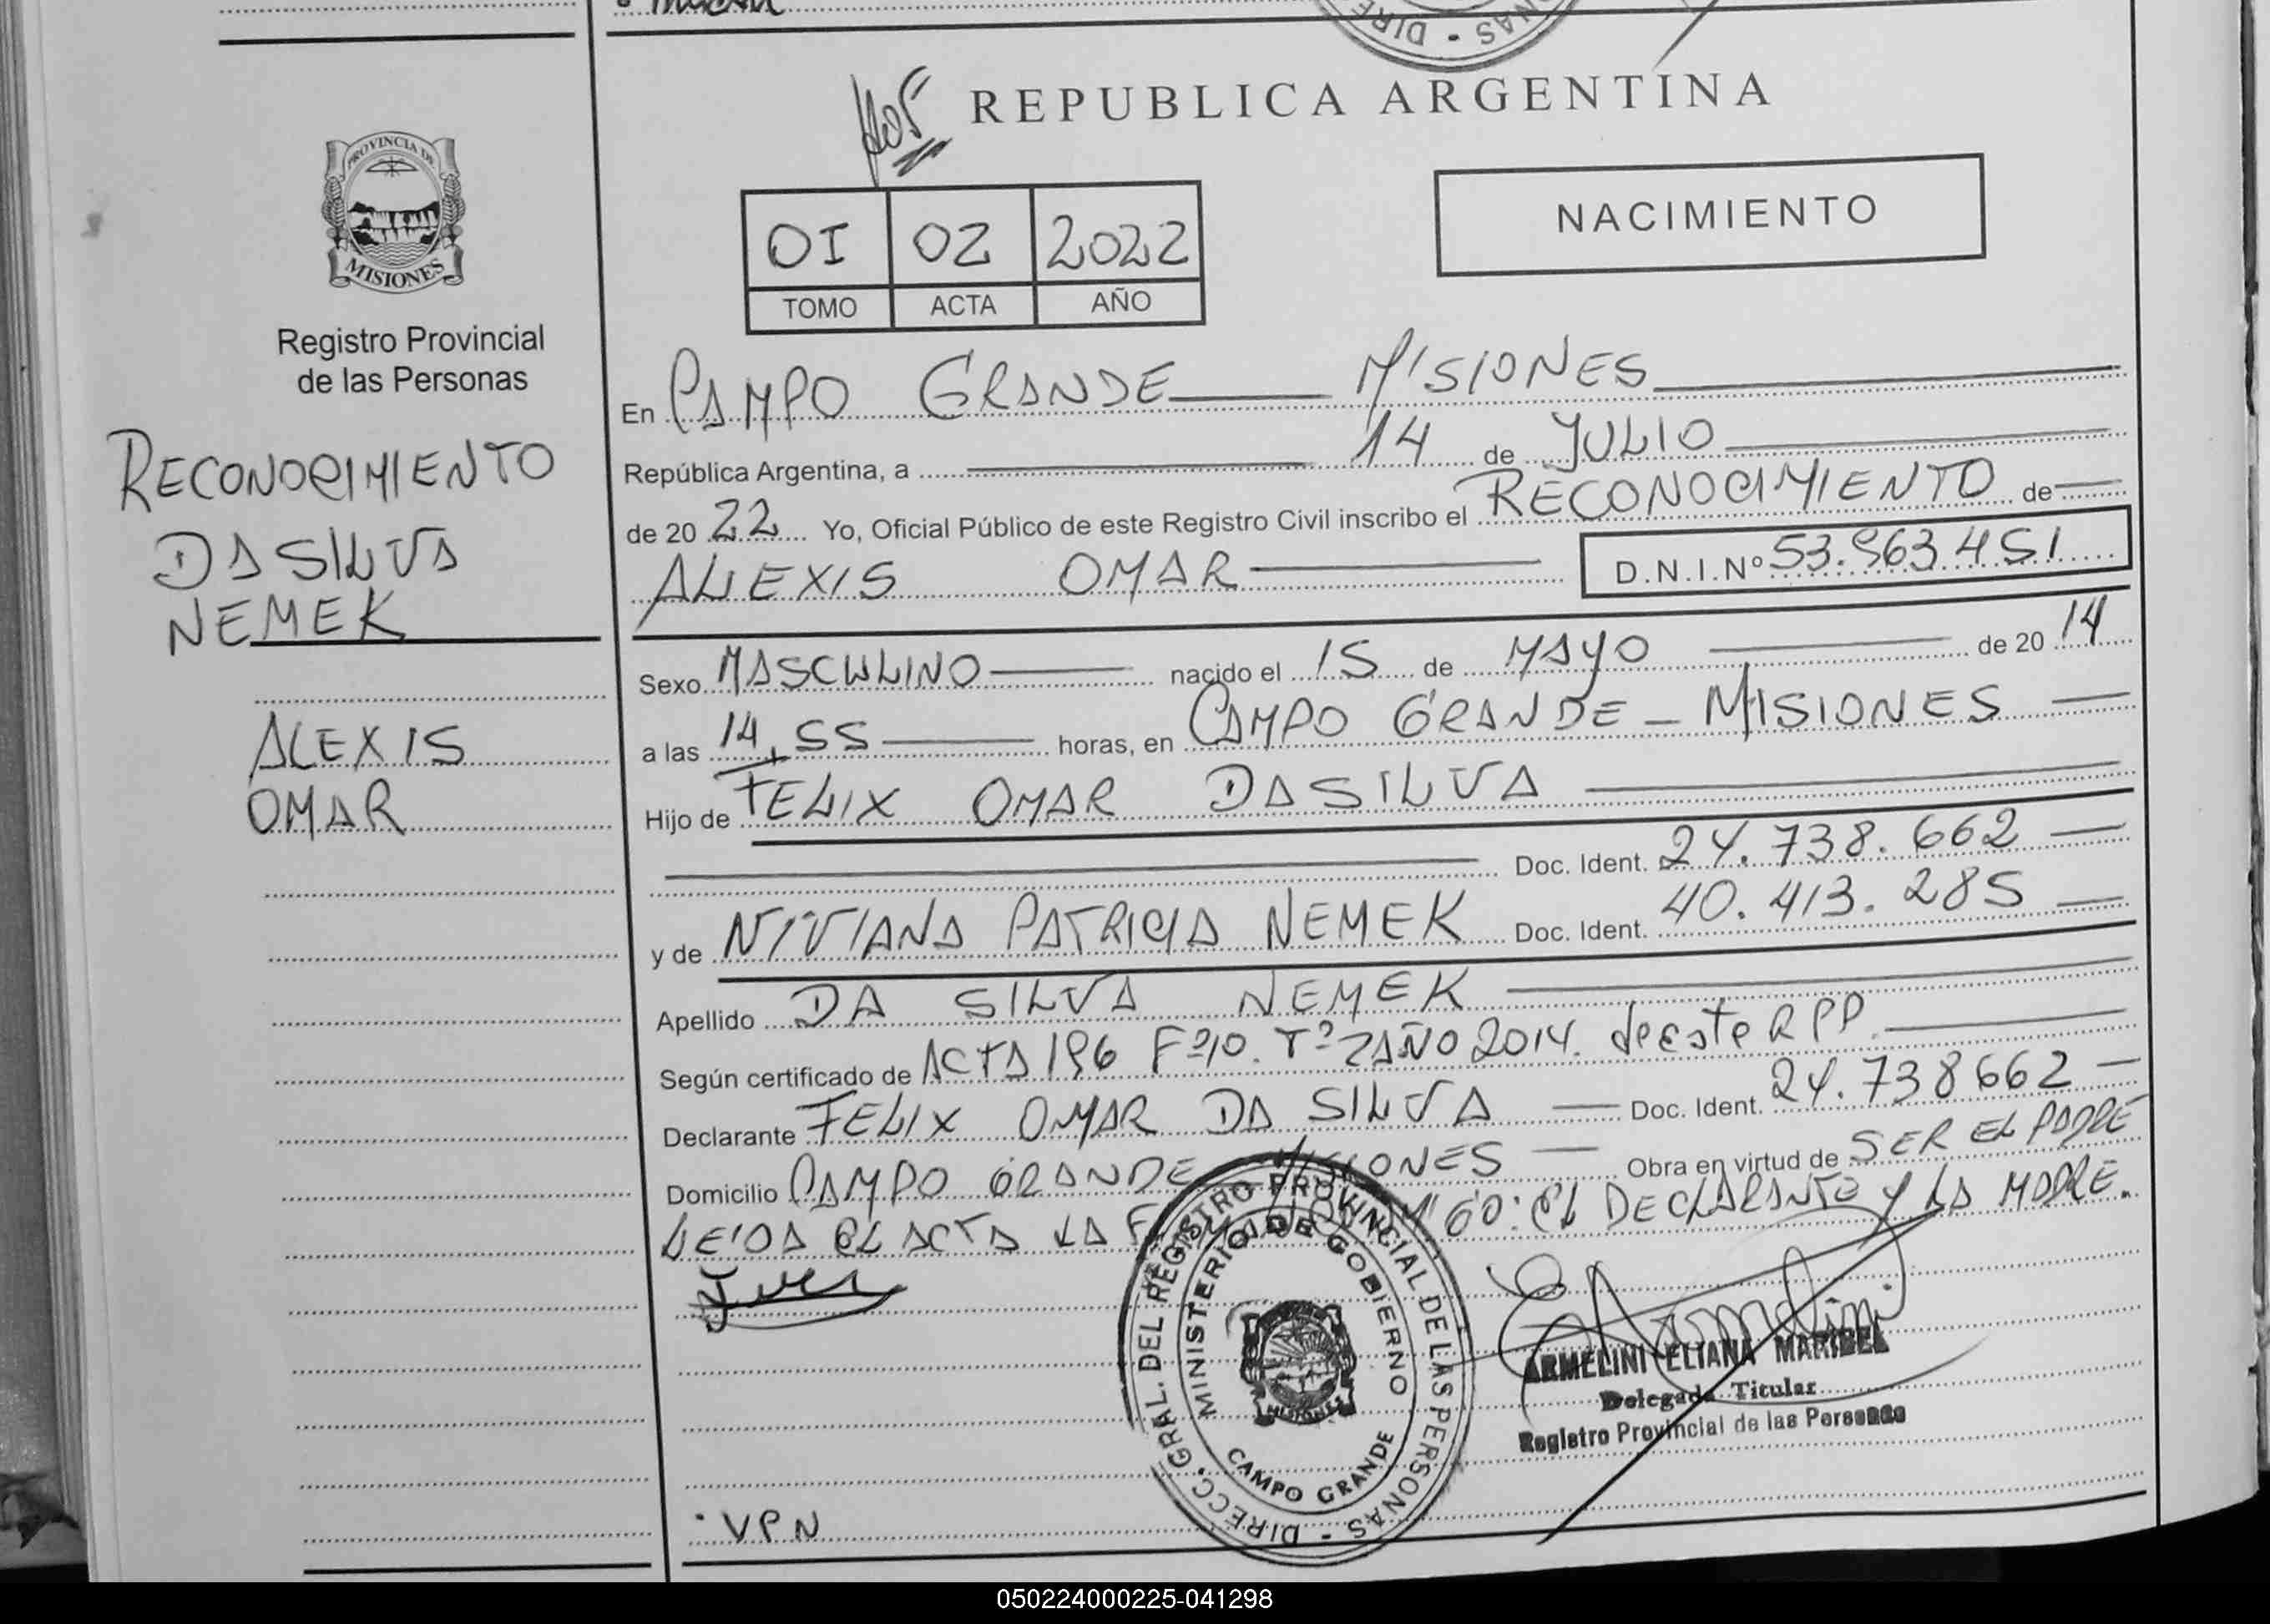 NAS - DIRE
REPUBLICA ARGENTINA
PROVINCIA DE
MISIONES
Registro Provincial
de las Personas
RECONOCIMIENTO
DA SILVA
NEMEK
ALEXIS
OMAR
01 02 2022
TOMO ACTA AÑO
NACIMIENTO
En CAMPO GRANDE MISIONES
República Argentina, a 14 de JULIO
de 20 22 Yo, Oficial Público de este Registro Civil inscribo el RECONOCIMIENTO de
ALEXIS OMAR D.N.I.Nº 53.963.451
Sexo MASCULINO nacido el 15 de MAYO de 20 14
a las 14,55 horas, en CAMPO GRANDE - MISIONES
Hijo de FELIX OMAR DA SILVA
Doc. Ident. 24.738.662
y de VIVIANA PATRICIA NEMEK Doc. Ident. 40.413.285
Apellido DA SILVA NEMEK
Según certificado de ACTA 196 Fº10. Tº 2 AÑO 2014. de este RPP.
Declarante FELIX OMAR DA SILVA Doc. Ident. 24.738662
Domicilio CAMPO GRANDE MISIONES Obra en virtud de SER EL PADRE
LEIDA EL ACTA LA FIRMAN CONMIGO: EL DECLARANTE Y LA MADRE.
DIRECC. GRAL. DEL REGISTRO PROVINCIAL DE LAS PERSONAS -
MINISTERIO DE GOBIERNO
MISIONES
CAMPO GRANDE
ARMELINI ELIANA MARIBEL
Delegada Titular
Registro Provincial de las Personas
VPN
050224000225-041298